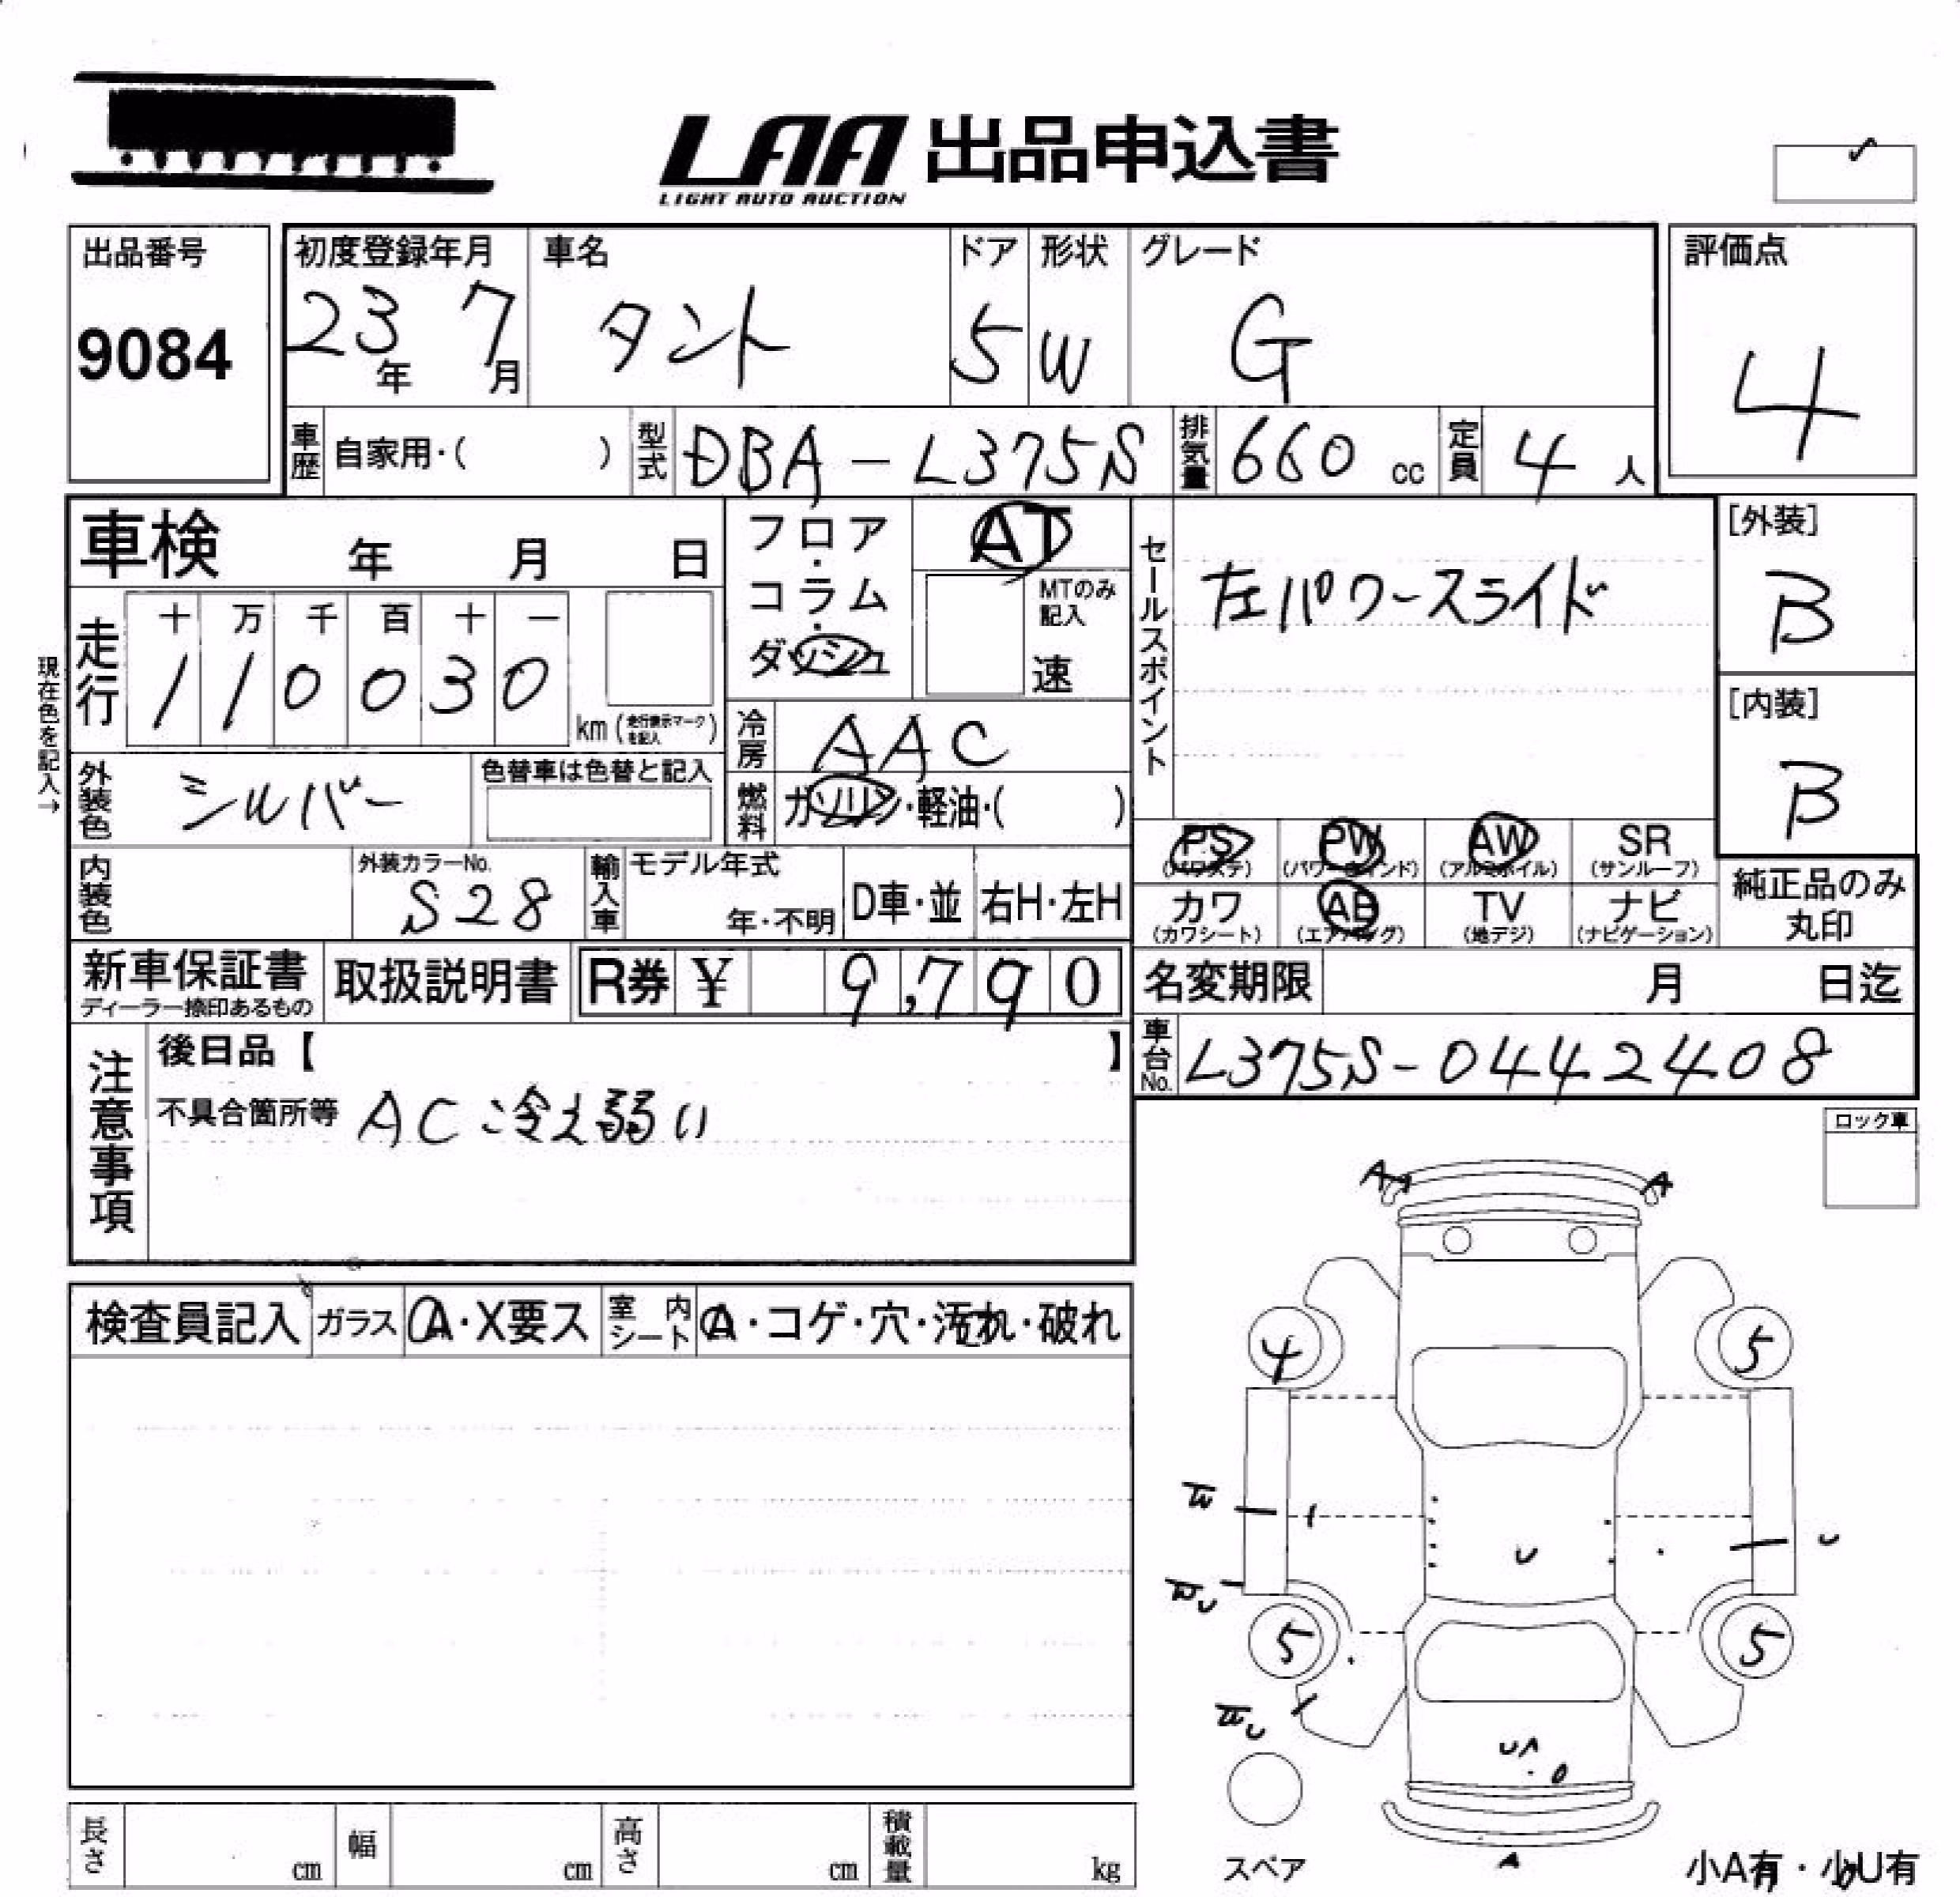 LAA 出品申込書
LIGHT AUTO AUCTION
出品番号
9084
初度登録年月
23年 7月
車名
タント
ドア
5
形状
W
グレード
G
評価点
4
車歴 自家用・( )
型式 DBA-L375S
排気量 660 cc
定員 4 人
車検 年 月 日
フロア・コラム・ダッシュ
AT
MTのみ記入
速
セールスポイント
左パワースライド
[外装]
B
[内装]
B
現在色を記入→
走行
十 万 千 百 十 一
1 1 0 0 3 0
km (走行表示マークを記入)
冷房 AAC
外装色 シルバー
色替車は色替と記入
燃料 ガソリン・軽油・( )
PS AW PW SR
(パワステ) (パワーウインド) (アルミホイル) (サンルーフ)
カワ AB TV ナビ
(カワシート) (エアバッグ) (地デジ) (ナビゲーション)
純正品のみ丸印
内装色
外装カラーNo.
S28
輸入車
モデル年式
年・不明
D車・並
右H・左H
新車保証書
ディーラー捺印あるもの
取扱説明書
R券 ¥ 9,790
名変期限 月 日迄
車台No. L375S-0442408
注意事項
後日品【 】
不具合箇所等 AC冷え弱い
ロック車
検査員記入
ガラス A・X要ス
室内シート A・コゲ・穴・汚れ・破れ
A A
4 5
U U
5 5
U
A
スペア
小A有・小U有
長さ cm
幅 cm
高さ cm
積載量 kg